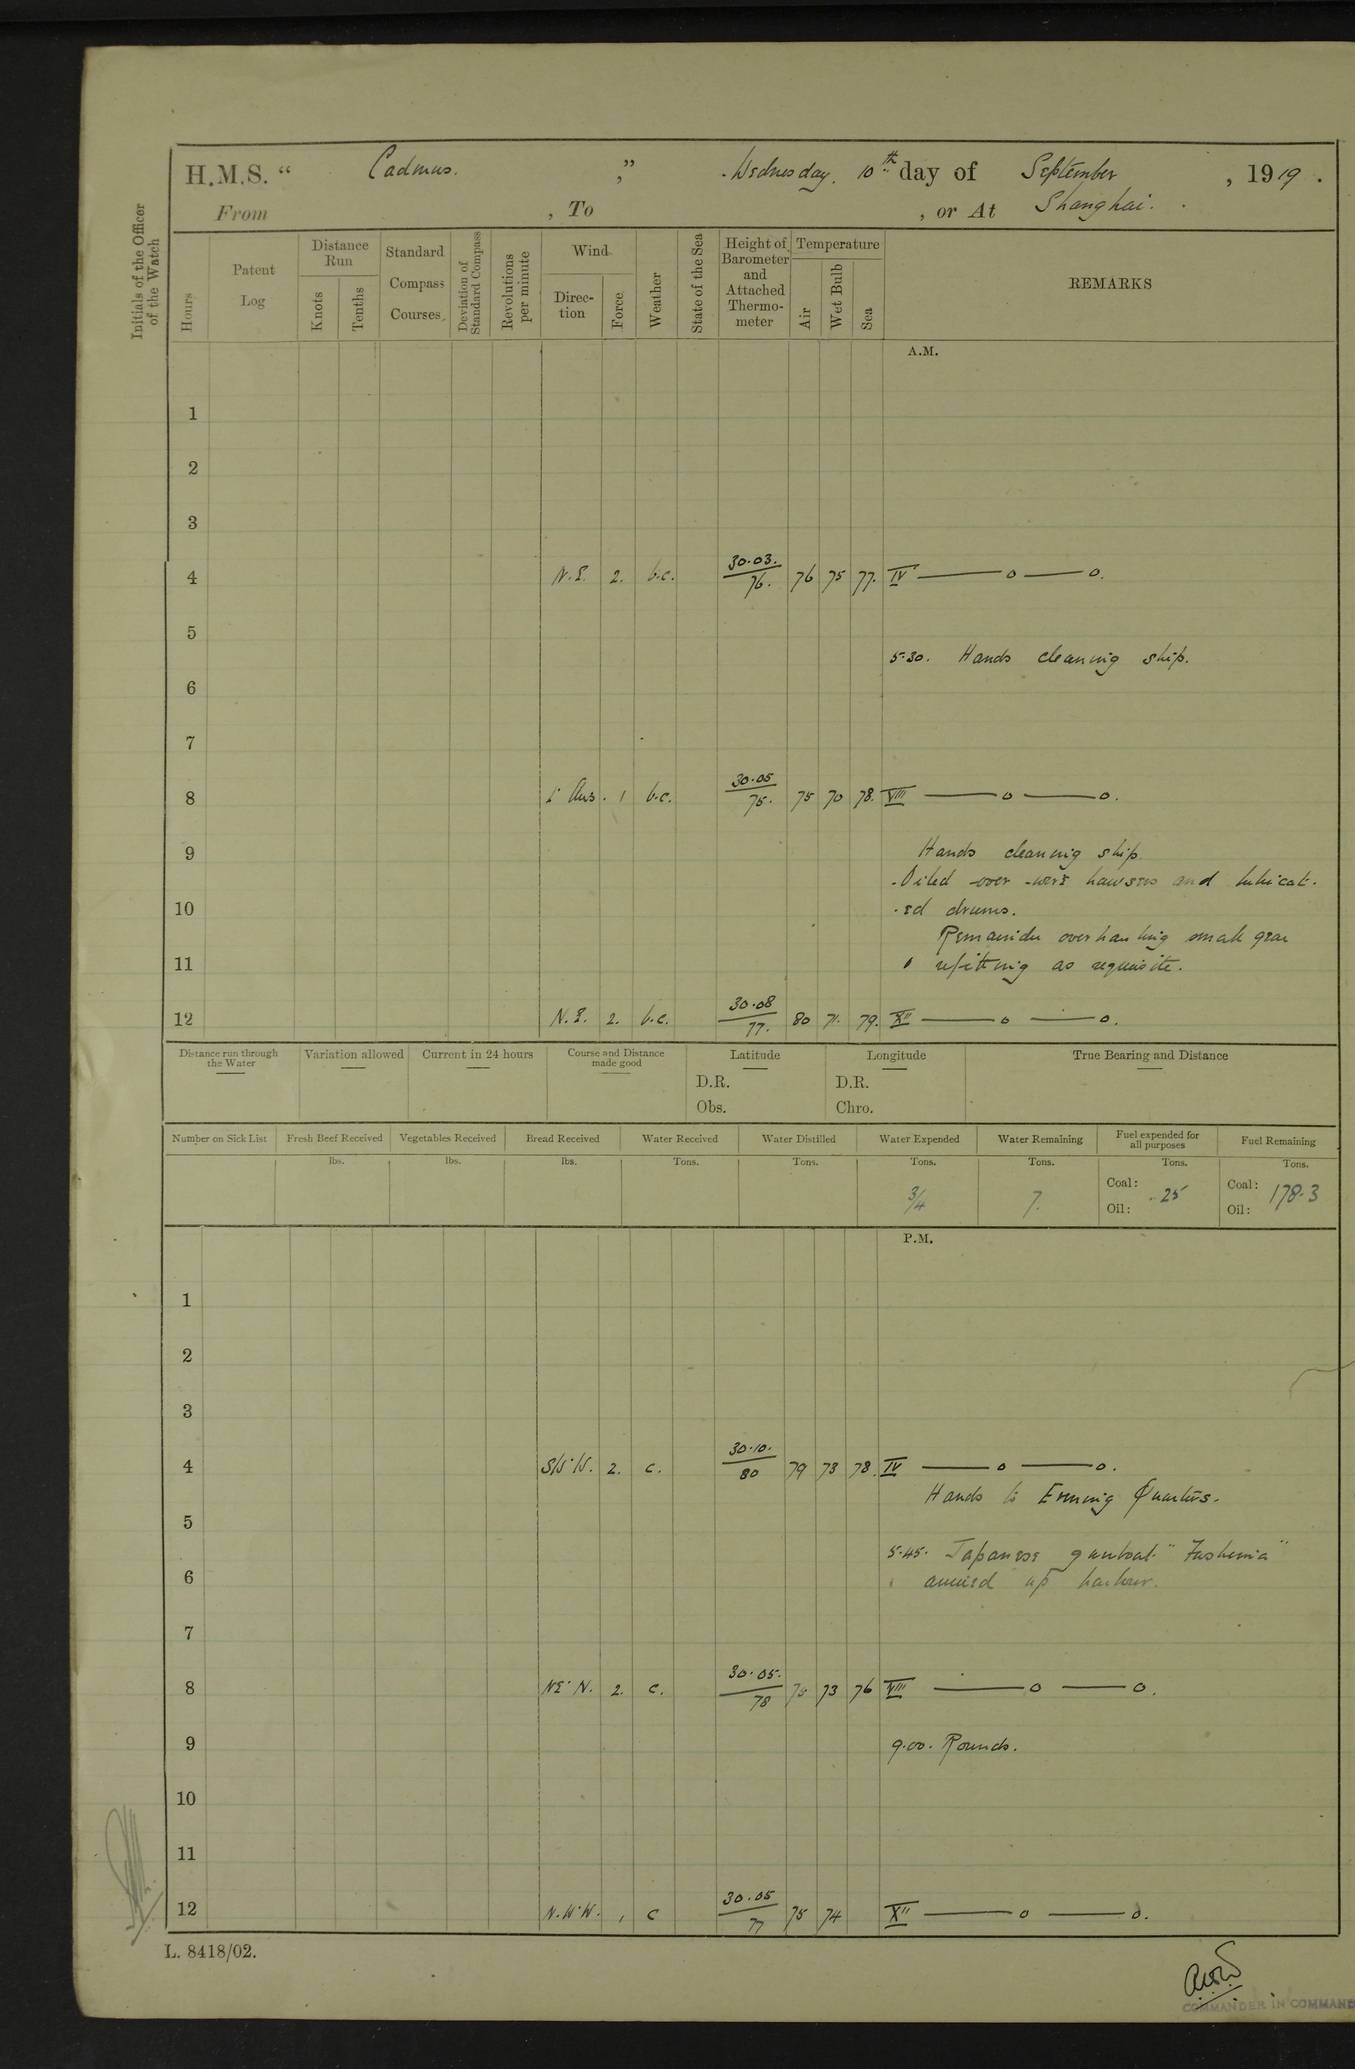 H.M.S. “ Cadmus. ,” Wednesday. 10th day of September , 1919 .
From , To , or At Shanghai.
Initials of the Officer of the Watch
Hours
Patent Log
Distance Run
Knots
Tenths
Standard Compass Courses
Deviation of Standard Compass
Revolutions per minute
Wind
Direc-tion
Force
Weather
State of the Sea
Height of Barometer and Attached Thermo-meter
Temperature
Air
Wet Bulb
Sea
REMARKS
A.M.
1
2
3
4 N.E. 2. b.c. 30.03. 76. 76 75 77. IV —— o —— o.
5
5.30. Hands cleaning ship.
6
7
8 1 b.c. 30.05 75. 75 70 78. VIII —— o —— o.
9 Hands cleaning ship.
Oiled over wire hawsers and lubicat.
10 .ed drums.
Remainder overhauling small gear
11 refitting as requisite.
12 N.E. 2. b.c. 30.08 77. 80 71. 79. XII —— o —— o.
Distance run through the Water
Variation allowed
Current in 24 hours
Course and Distance made good
Latitude
D.R.
Obs.
Longitude
D.R.
Chro.
True Bearing and Distance
Number on Sick List
Fresh Beef Received
Vegetables Received
Bread Received
Water Received
Water Distilled
Water Expended
Water Remaining
Fuel expended for all purposes
Fuel Remaining
lbs. lbs. lbs. Tons. Tons. Tons. Tons. Tons. Tons.
3/4 7. Coal: .25 Coal: 178.3
Oil: Oil:
P.M.
1
2
3
4 SW.W. 2. c. 30.10. 80 79 73 78. IV —— o —— o.
Hands to Evening Quarters.
5
5.45. Japanese gunboat "
6 arrived up harbour.
7
8 NE.N. 2. c. 30.05. 78 75 73 76 VIII —— o —— o.
9 9.00. Rounds.
10
11
12 N.W.W. 1 c 30.05 77 75 74 XII —— o —— o.
L. 8418/02.
COMMANDER IN COMMAND